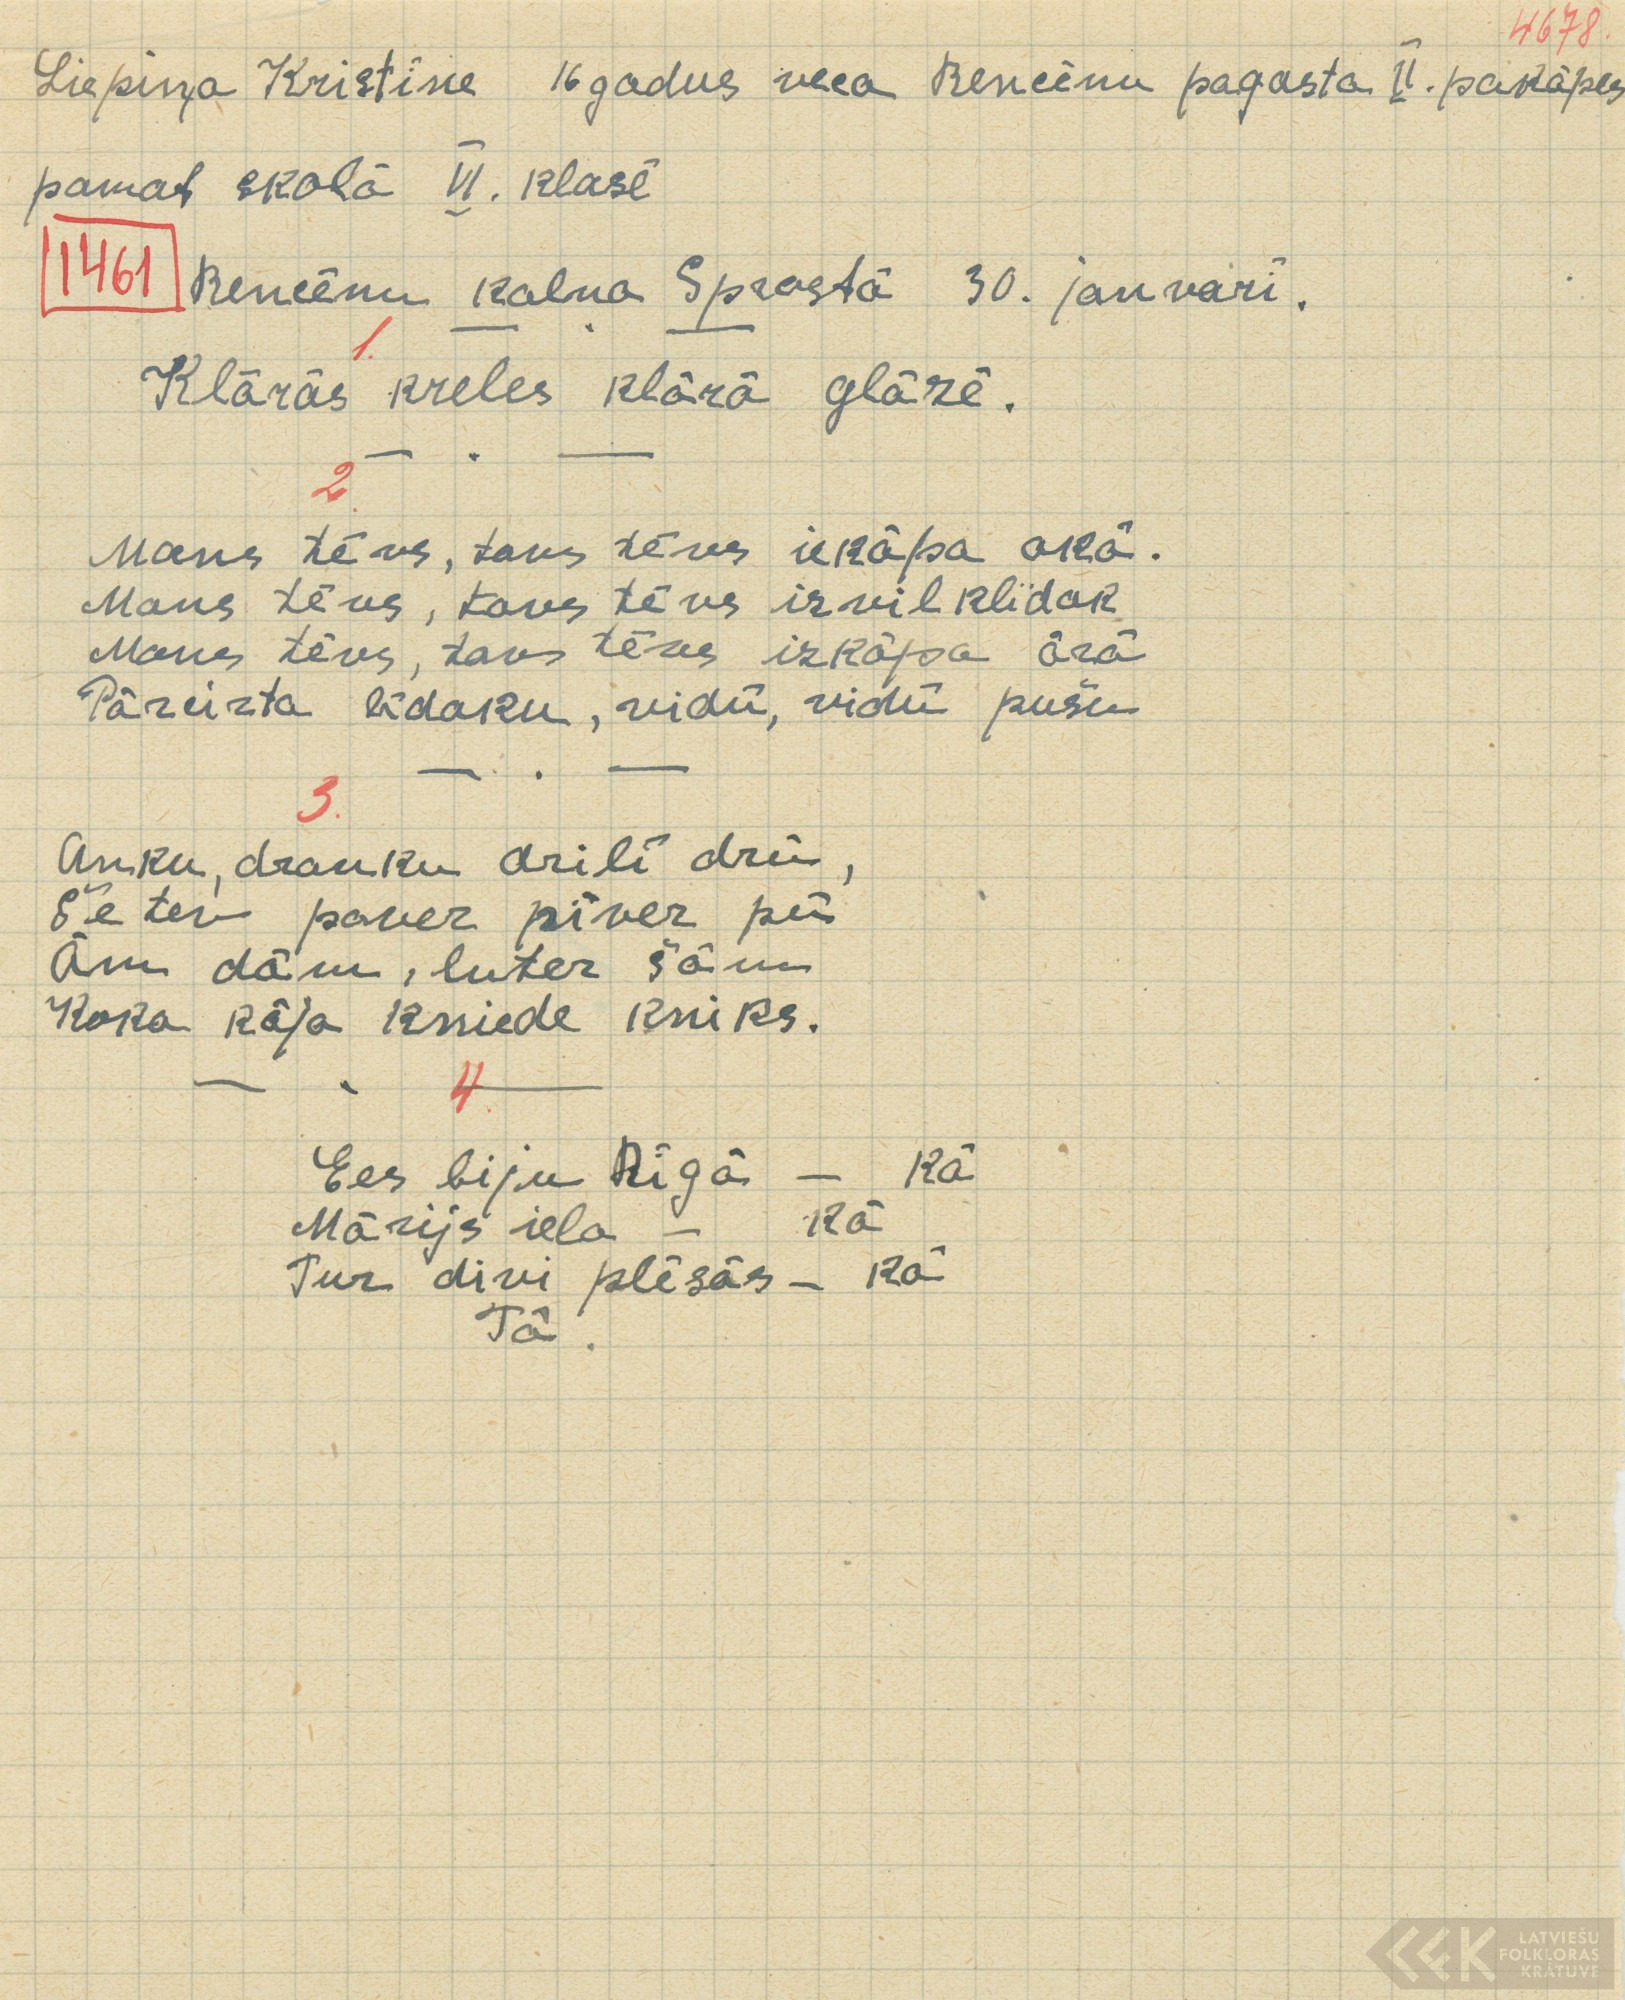 4678.
Liepiņa Kristīne 16 gadus veca Rencēnu pagasta II. pakāpes
pamat skolā VI. klasē
1461 Rencēnu kalna Sprostā 30. janvarī.
1.
Klārās kreles klārā glāzē.
2.
Mans tēvs, tavs tēvs iekāpa akā.
Mans tēvs, tavs tēvs izvilklīdak
Mans tēvs, tavs tēvs izkāpa ārā
Pārcirta līdaku, vidū, vidū pušu
3.
Anku, dranku drilī drū,
Še tev paver pīver pū
Ām dām, luter šām
Koka kāja kniede kniks.
4.
Ees biju Rīgā – kā
Mārijs iela – kā
Tur divi plēsās – kā
Tā.
LATVIEŠU
FOLKLORAS
KRĀTUVE